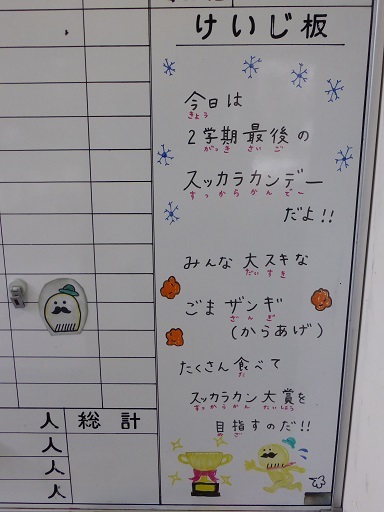 けいじ板
今日は
きょう
2学期最後の
がっき さいご
スッカラカンデー
すっからかんでー
だよ!!
みんな 大スキな
だいすき
ごま ザンギ
ざんぎ
(からあげ)
たくさん 食べて
た
スッカラカン 大賞を
すっからかん たいしょう
目指すのだ!!
めざ
人 総計
人
人
人